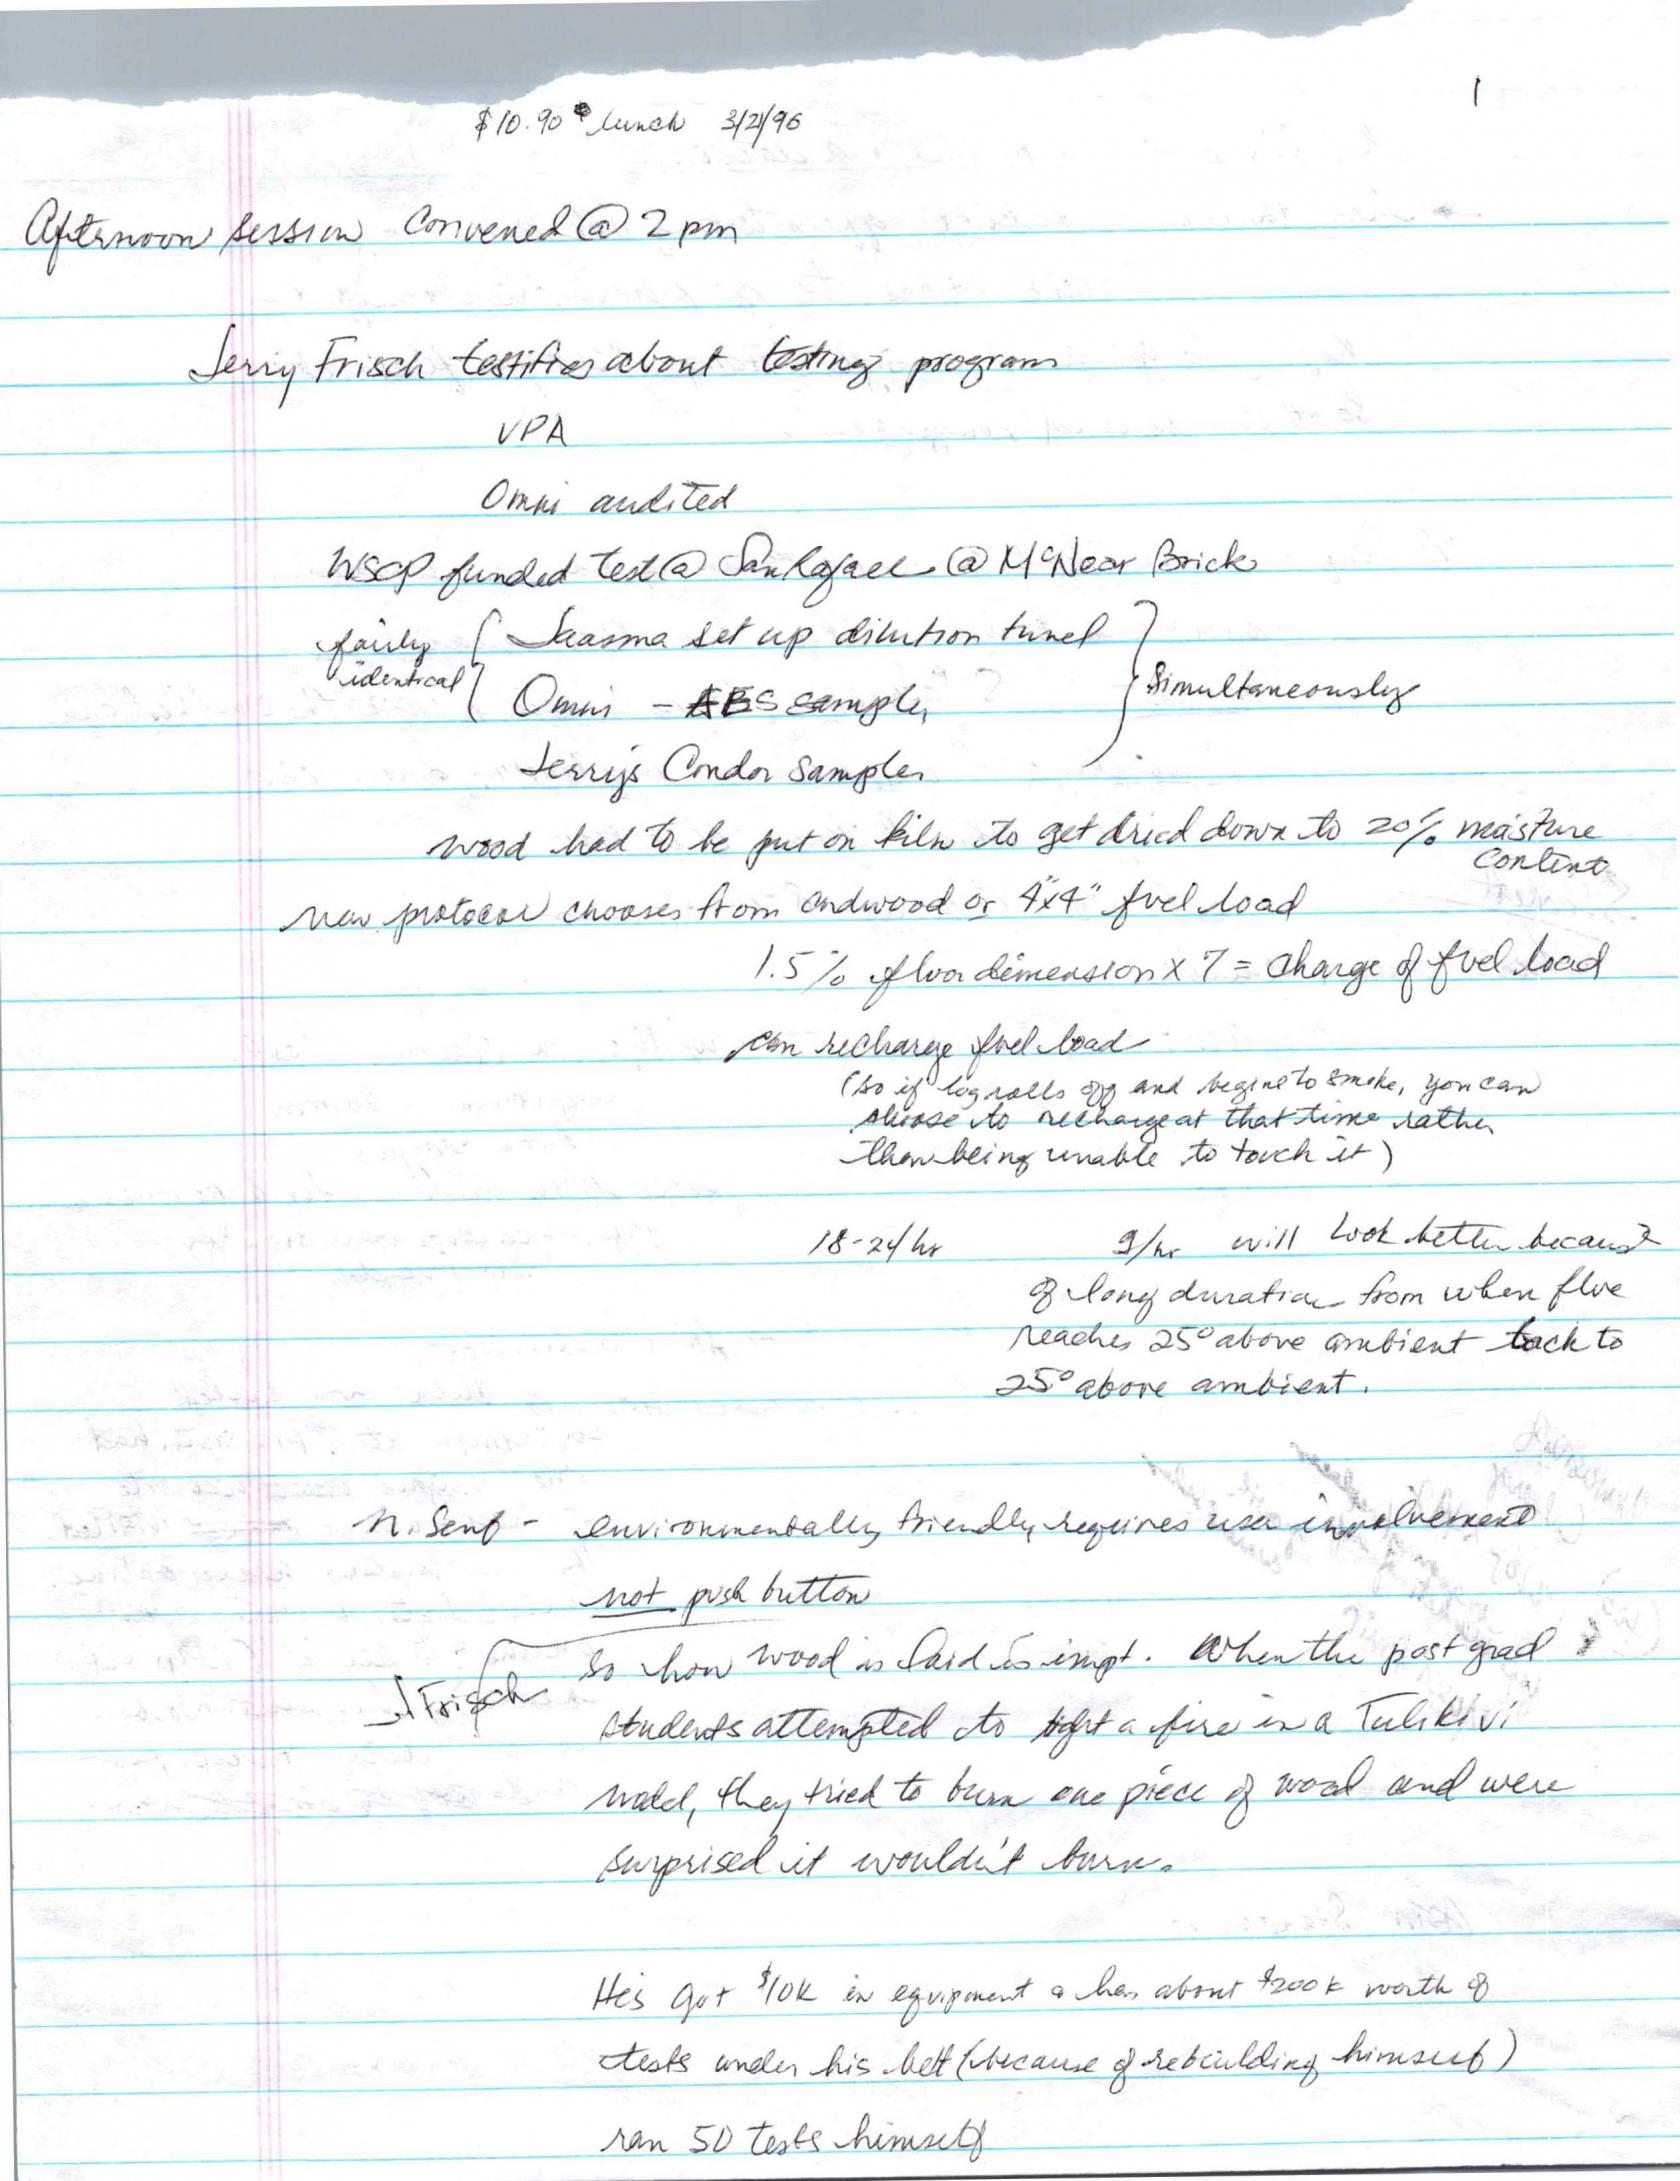 1
$10.90 lunch 3/21/96
Afternoon session Convened @ 2 pm
Jerry Frisch testifies about testing program
VPA
Omni audited
funded test @ San Rafael @ McNear Brick
fairly identical { Jaasma set up dilution tunnel
Omni - sampler } Simultaneously
Jerry's Condor Sampler
wood had to be put on kiln to get dried down to 20% moisture
content
new protocol chooses from cordwood or 4"x4" fuel load
1.5% floor dimension x 7 = charge of fuel load
can recharge fuel load
(so if log rolls off and begins to smoke, you can
choose to recharge at that time rather
than being unable to touch it)
18-24 hr g/hr will look better because
of long duration from when flue
reaches 25° above ambient back to
25° above ambient.
N. Senf - environmentally friendly requires user involvement
not push button
J Frisch so how wood is laid is impt. When the post grad
students attempted to light a fire in a Tulikivi
model, they tried to burn one piece of wood and were
surprised it wouldn't burn.
He's got $10K in equipment & has about $200K worth of
tests under his belt (because of rebuilding himself)
ran 50 tests himself